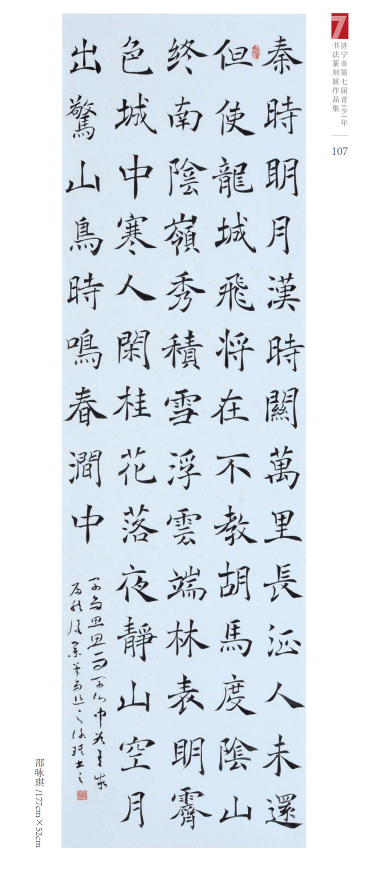 秦時明月漢時關萬里長征人未還
但使龍城飛将在不教胡馬度陰山
終南陰嶺秀積雪浮雲端林表明霽
色城中寒人閑桂花落夜靜山空月
出驚山鳥時鳴春澗中
7
济宁市第七届青(少)年
书法篆刻展作品集
107
邵咏琪/177cm×52cm